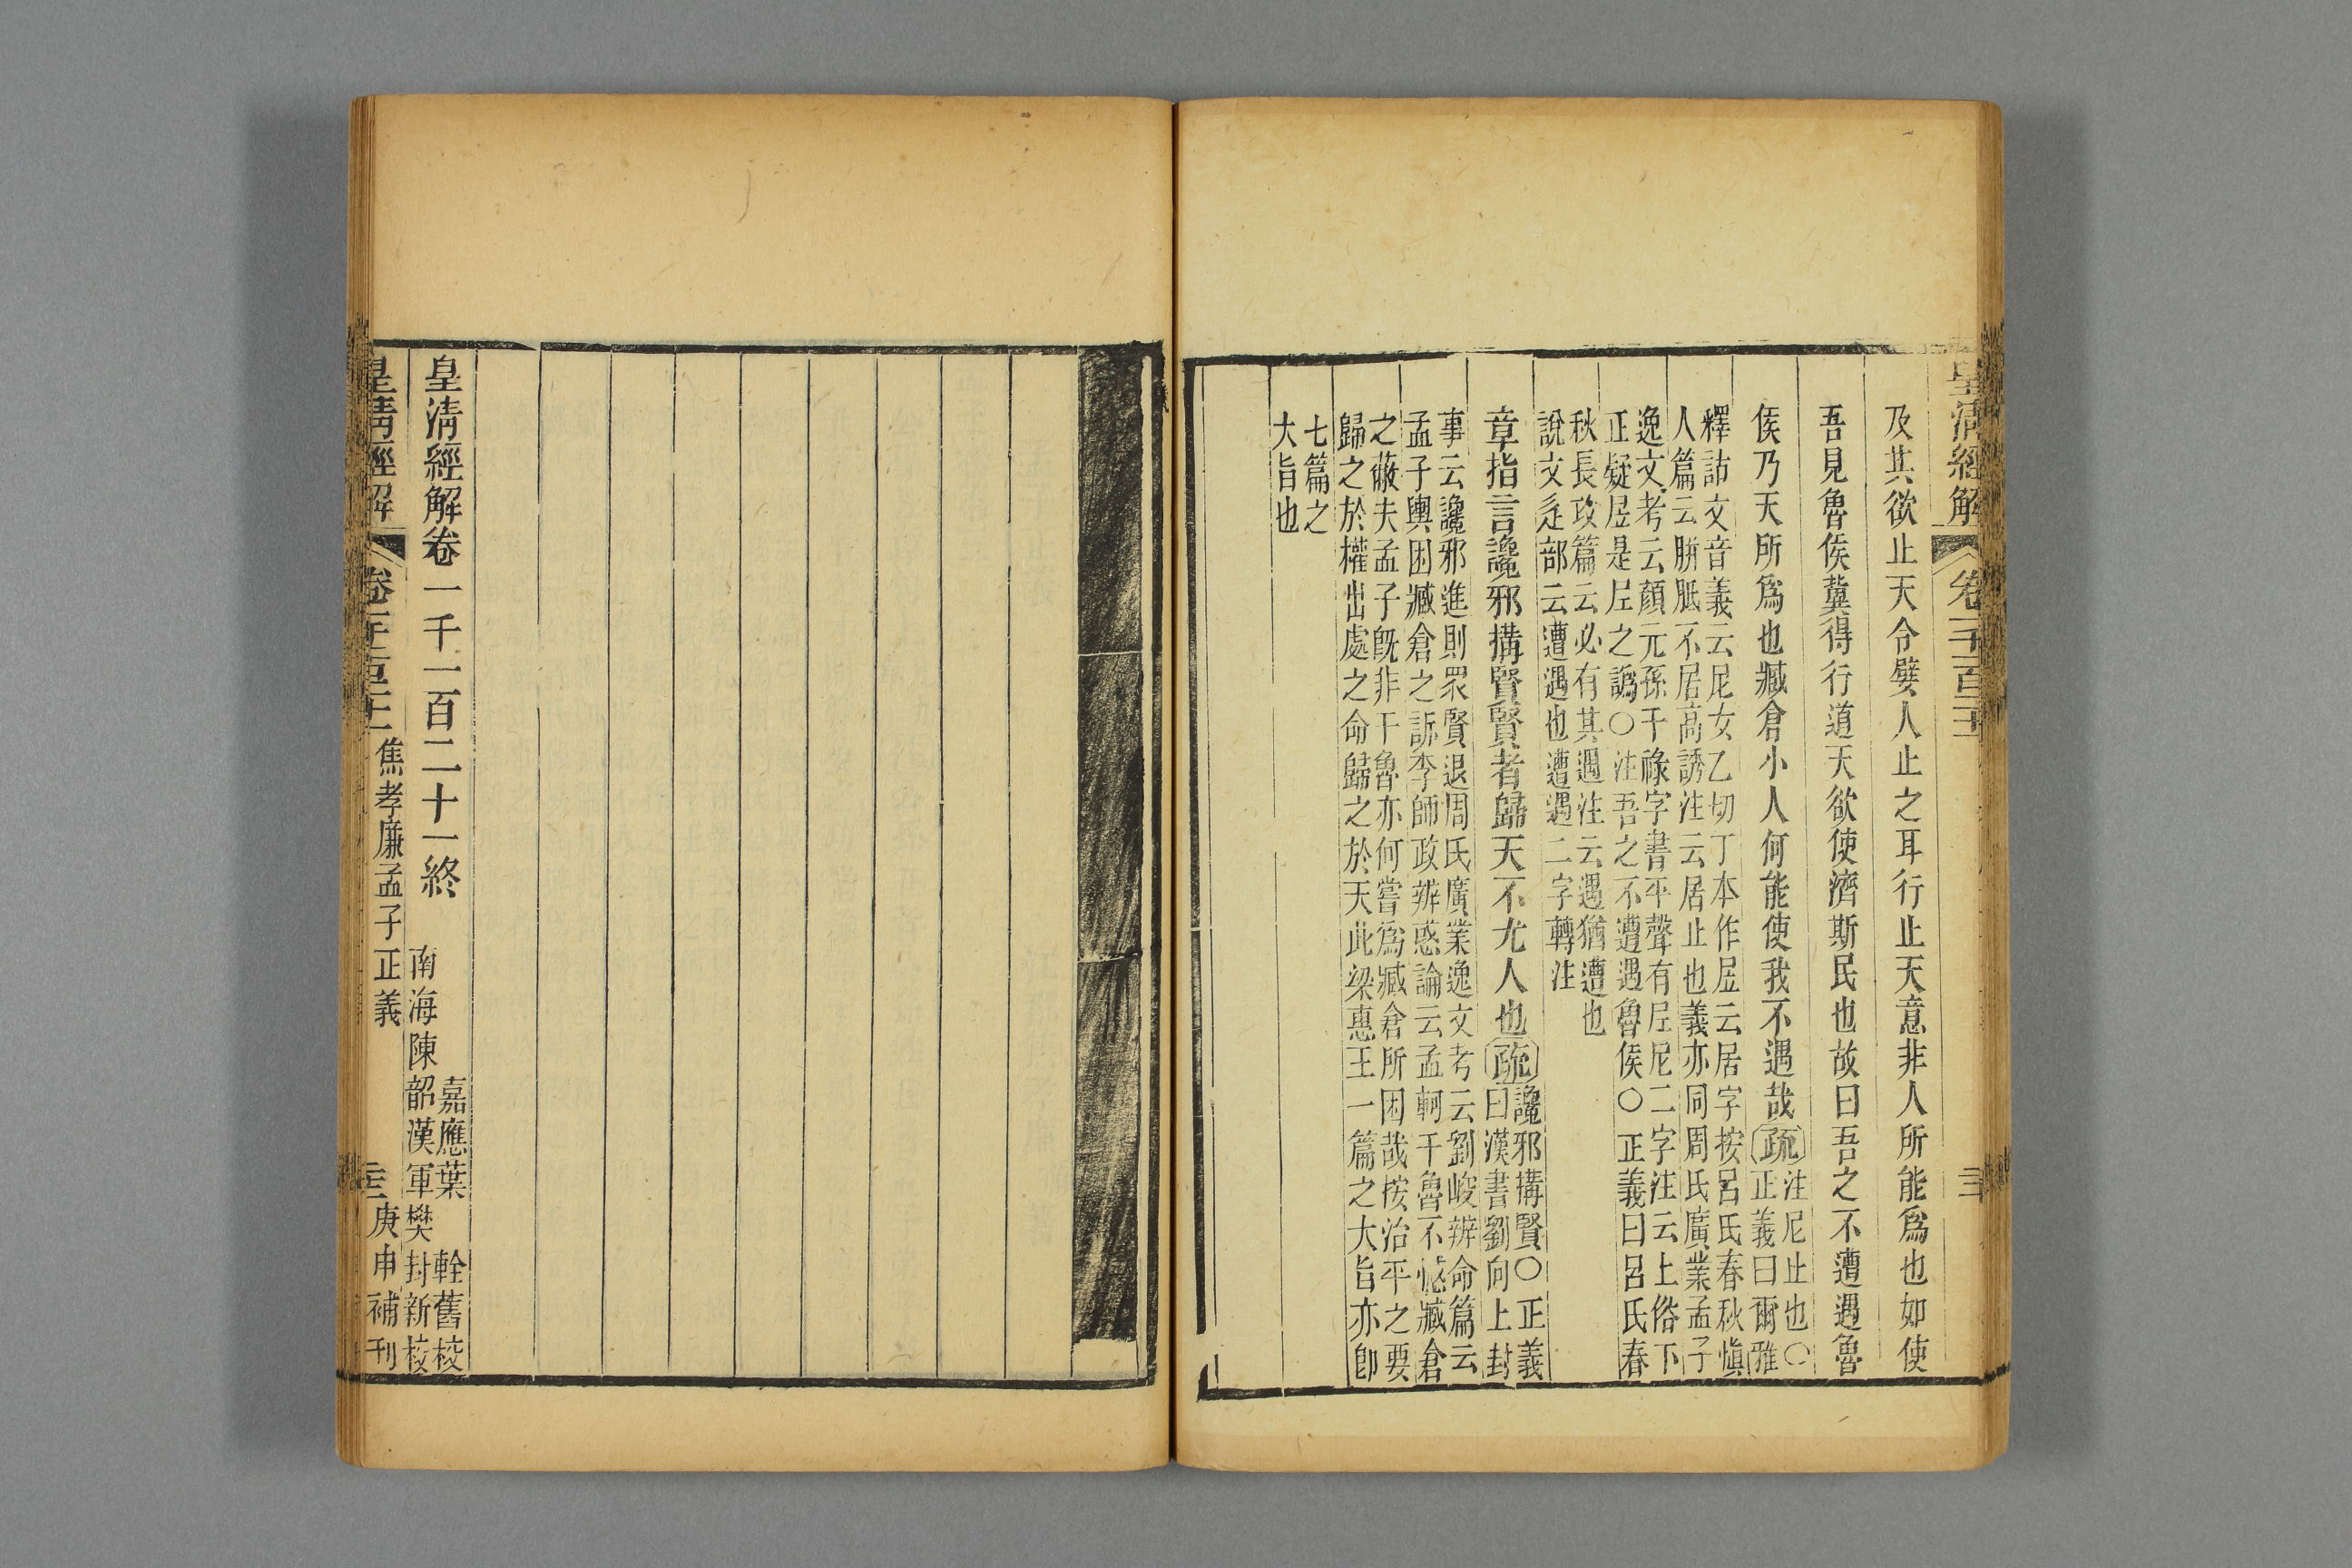 皇清經解
卷一千一百二十一
及其欲止天令嬖人止之耳行止天意非人所能爲也如使
吾見魯侯冀得行道天欲使濟斯民也故曰吾之不遭遇魯
侯乃天所爲也臧倉小人何能使我不遇哉疏
注尼止也〇
正義曰爾雅
釋詁文音義云尼女乙切丁本作㞐云居字按呂氏春秋愼
人篇云胼胝不居高誘注云居止也義亦同周氏廣業孟子
逸文考云顔元孫干祿字書平聲有𡰥尼二字注云上俗下
正疑㞐是𡰥之譌〇注吾之不遭遇魯侯〇正義曰呂氏春
秋長攻篇云必有其遇注云遇猶遭也
說文辵部云遭遇也遭遇二字轉注
章指言讒邪搆賢賢者歸天不尤人也疏
讒邪搆賢〇正義
曰漢書劉向上封
事云讒邪進則眾賢退周氏廣業逸文考云劉峻辨命篇云
孟子輿困臧倉之訴李師政辨惑論云孟軻干魯不憾臧倉
之蔽夫孟子旣非干魯亦何嘗爲臧倉所困哉按治平之要
歸之於權出處之命歸之於天此梁惠王一篇之大旨亦卽
七篇之
大旨也
皇清經解卷一千一百二十一終
嘉應葉軨舊校
南海陳韶漢軍樊封新校
皇清經解
卷一千一百二十一
焦孝廉孟子正義
庚申補刊